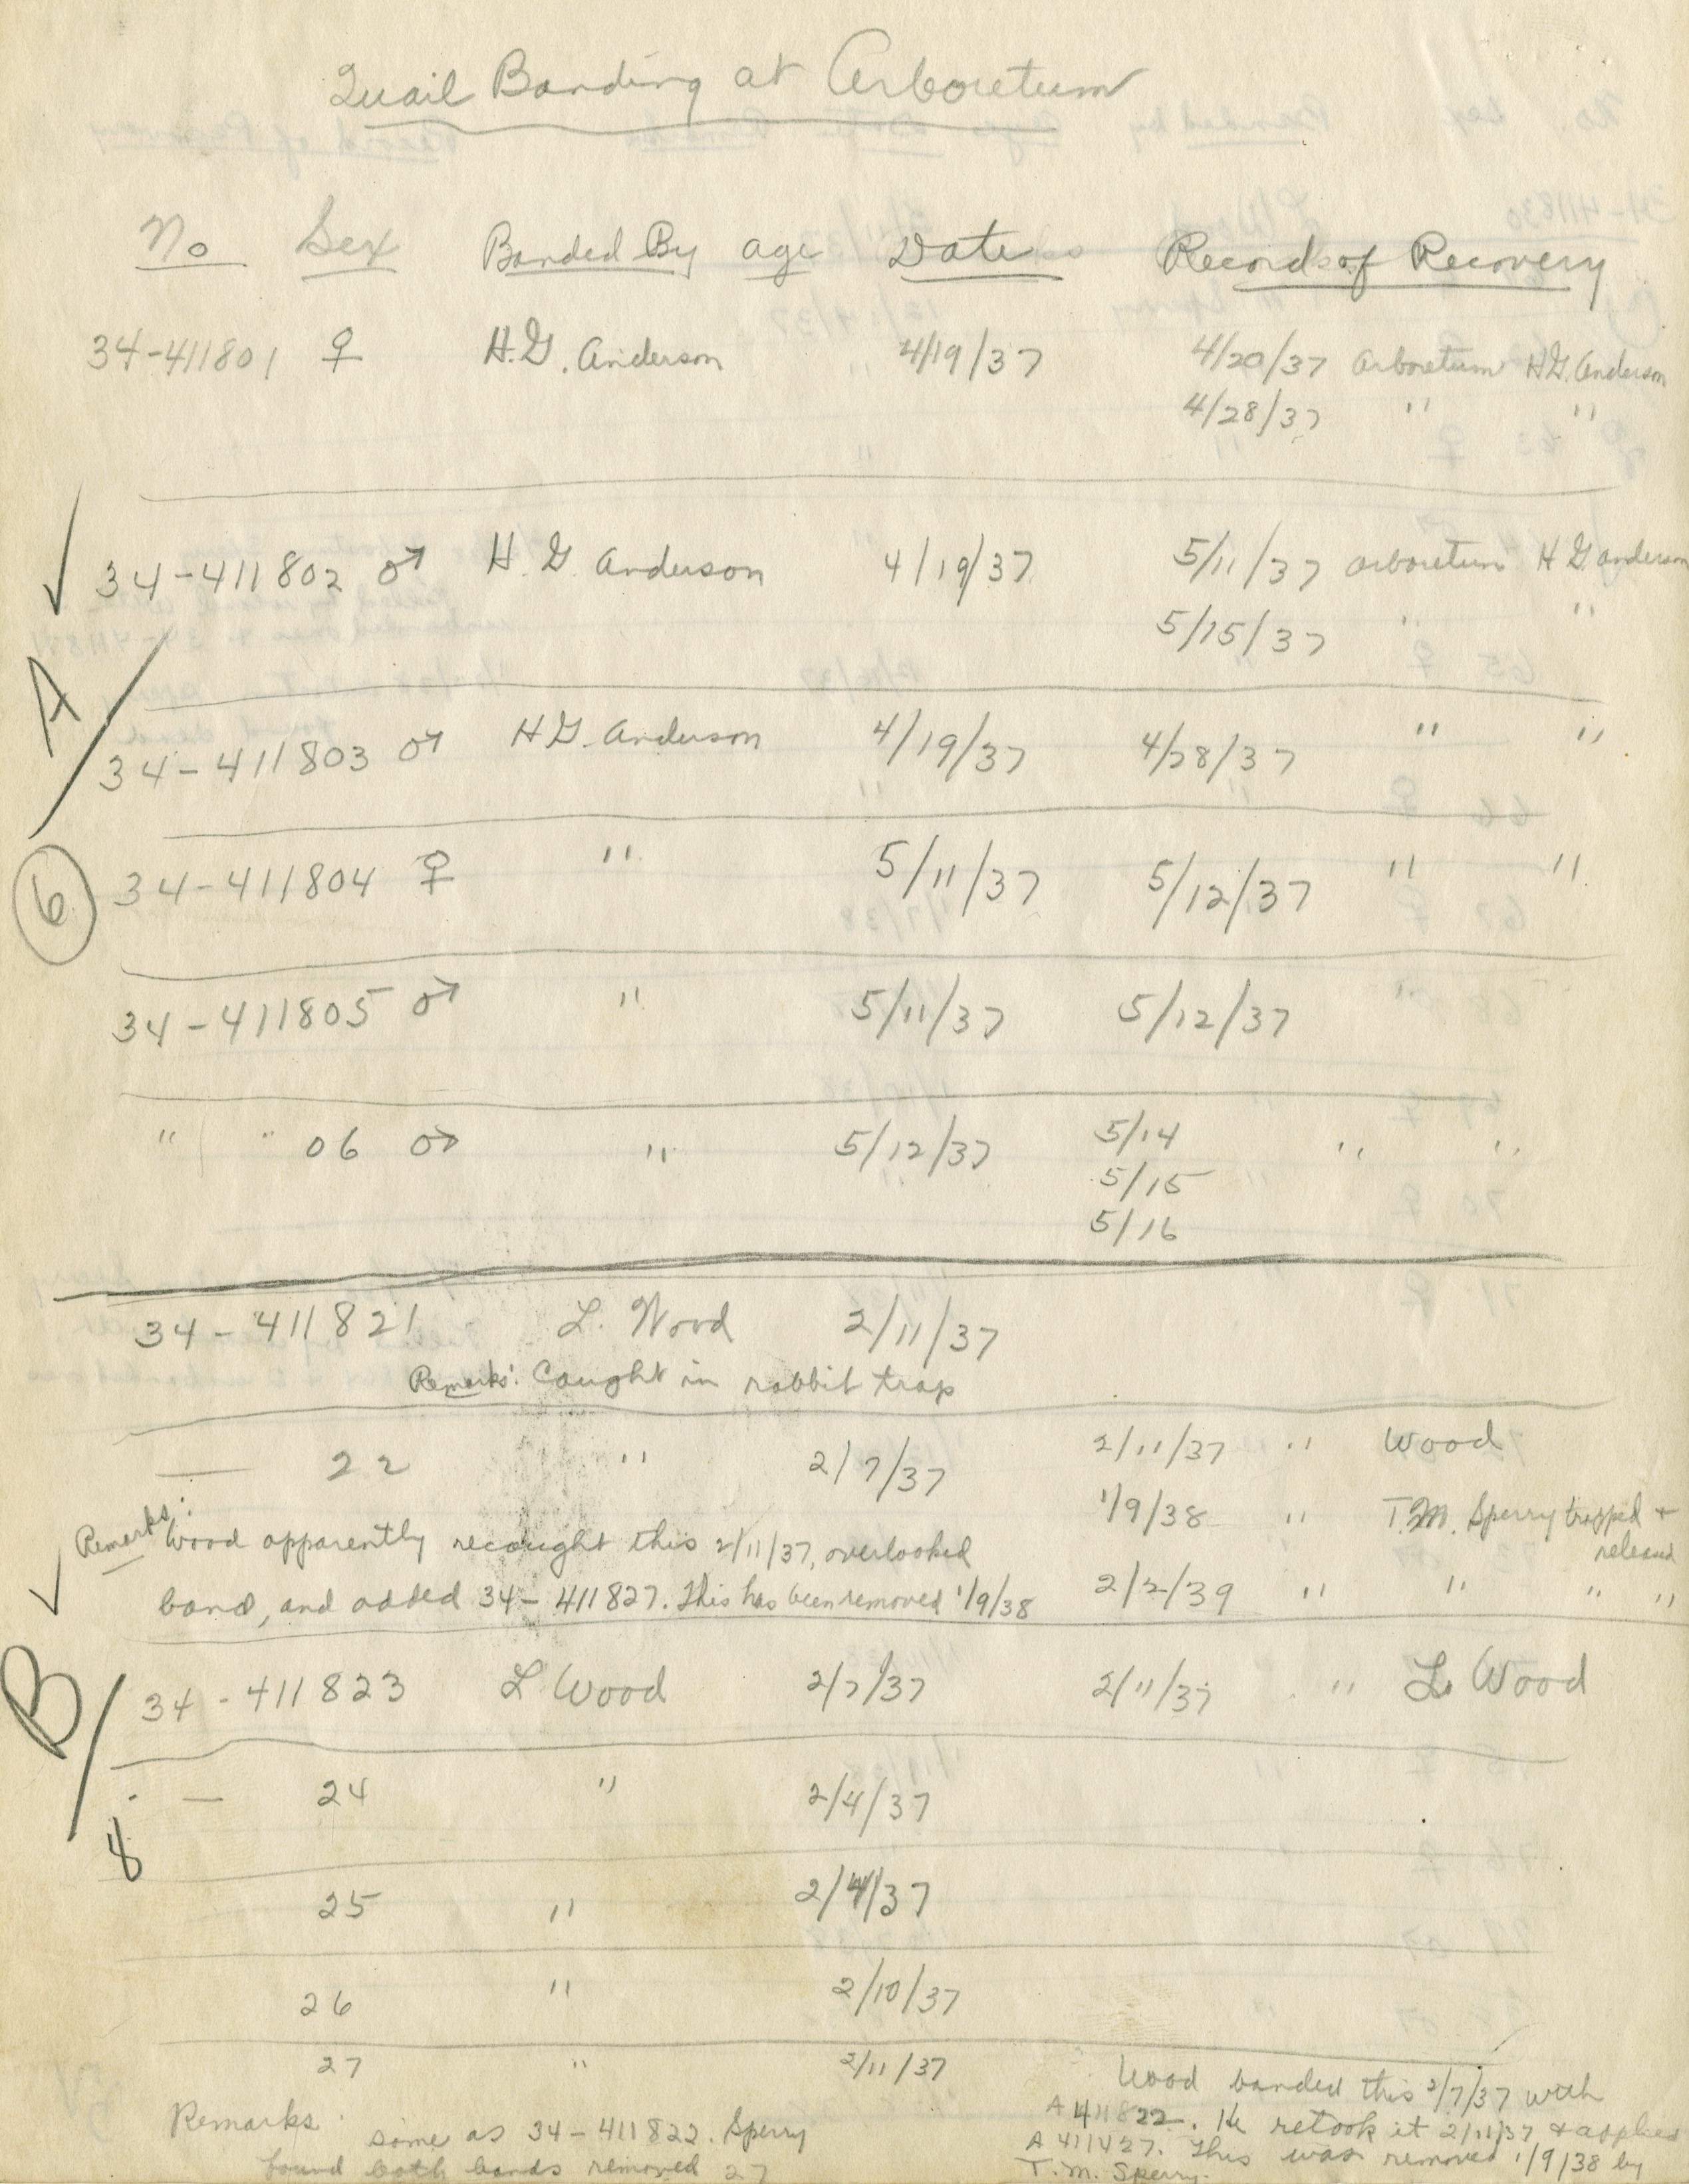 Quail Banding at Arboretum
No Sex Banded By age Date Records of Recovery
34-411801 ♀ H.G. Anderson 4/19/37 4/20/37 Arboretum H.G. Anderson
4/28/37 " "
34-411802 ♂ H.G. Anderson 4/19/37 5/11/37 Arboretum H G Anderson
5/15/37 " "
A
34-411803 ♂ H G. Anderson 4/19/37 4/28/37 " "
6 34-411804 ♀ " 5/11/37 5/12/37 " "
34-411805 ♂ " 5/11/37 5/12/37
" " 06 ♂ " 5/12/37 5/14 " "
5/15
5/16
34-411821 L. Wood 2/11/37
Remarks: Caught in rabbit trap
— 22 " 2/7/37 2/11/37 " Wood
1/9/38 " T.M. Sperry trapped +
released
Remarks: Wood apparently recaught this 2/11/37, overlooked
band, and added 34-411827. This has been removed 1/9/38 2/2/39 " " " "
B
34-411823 L Wood 2/7/37 2/11/37 " L. Wood
— 24 " 2/4/37
8
25 " 2/4/37
26 " 2/10/37
27 " 2/11/37
Remarks: same as 34-411822. Sperry
found both bands removed 27
Wood banded this 2/7/37 with
A 411822. He retook it 2/11/37 & applied
A 411427. This was removed 1/9/38 by
T.M. Sperry.